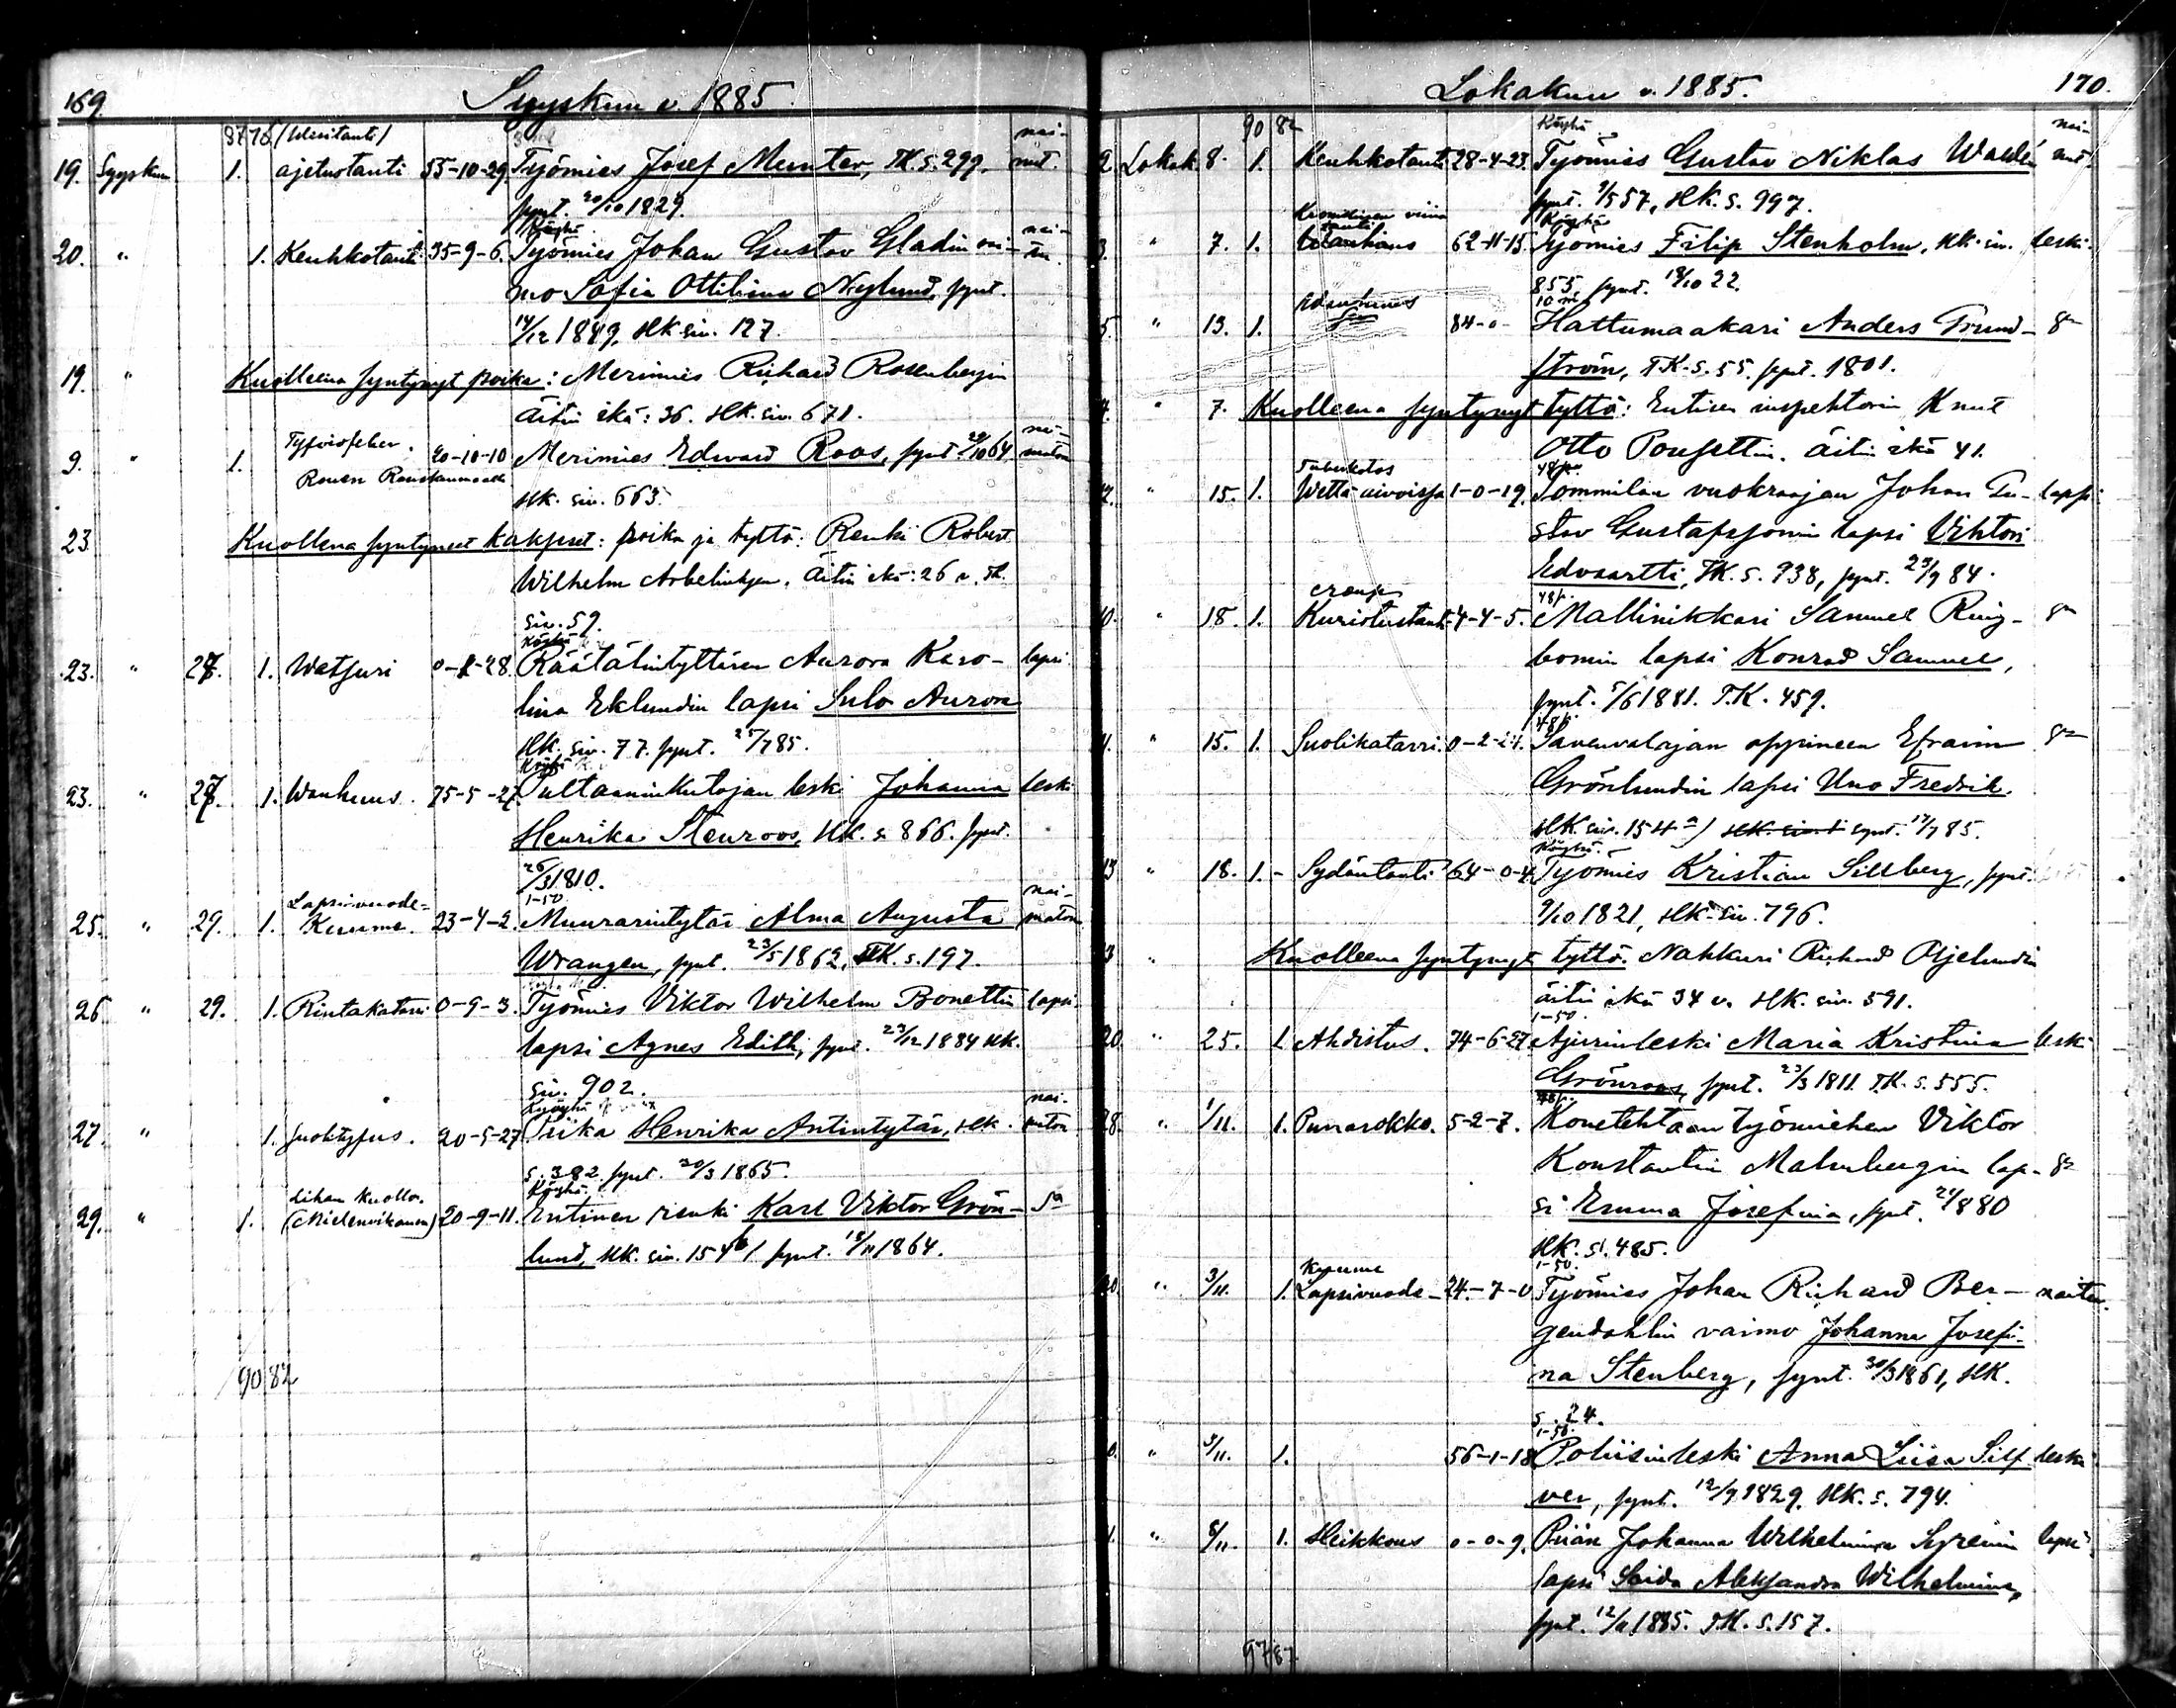 169. Syyskuu v. 1885.
87 76 (Wesitauti) nai-
19. Syyskuu 1. ajetustauti 55-10-29. Työmies Josef Munter, TK. s. 299. nut.
synt. 20/10 1829.
Köyhä. nai-
20. " 1. Keuhkotauti 35-9-6. Työmies Johan Gustav Gladin vai-
mo Sofia Ottiliana Nylund, synt.
14/12 1849, HK. siv. 127.
19. " Kuolleena syntynyt poika: Merimies Richard Rosenbergin
Äitin ikä: 36. HK. siv. 671.
9. " 1. 20-10-10 Merimies Edward Roos, synt. 29/10 64. maton
Rouen Ranskanmaalla
HK. siv. 663.
23. Kuollena syntyneet kaksoset: poika ja tyttö: Renki Robert
Wilhelm Arbelinksen. Äitin ikä: 26 v. TK.
siv. 59.
Köyhä
23. " 27. 1. Watsuri 0-1-28. Räätälintyttären Aurora Karo- lapsi
lina Eklundin lapsi Sulo Aurora
HK. siv. 77. synt. 25/7 85.
Köyhä
23. " 27. 1. Wanhuus. 75-5-27. Pultaaninkutojan leski Johanna leski
Henrika Stenroos, HK. s. 866. synt.
26/3 1810.
Lapsivuode- 1-50 nai-
25. " 29. 1. Kuume. 23-4-2. Muurarintytär Alma Augusta maton
Wrangen, synt. 23/5 1862, TK. s. 197.
26. " 29. 1. Rintakatarri 0-9-3. Työmies Viktor Wilhelm Bonettin lapsi
lapsi Agnes Edith, synt. 23/12 1884 HK.
siv. 902.
nai-
27. " 1. Suolityfus. 20-5-27 Piika Henrika Antintytär, HK. maton
s. 382. synt. 30/3 1865.
Lihan kuollo. Köyhä.
29. " 1. (Mielenvikainen) 20-9-11. Entinen renki Karl Viktor Grön- Sa
lund, HK. siv. 154 b/. synt. 18/11 1864.
90 82
Lokakuu v. 1885. 170.
90 82 Köyhä nai-
2. Lokak. 8. 1. Keuhkotauti 28-4-23. Työmies Gustav Niklas Waldén nut.
synt. 9/5 57, HK. s. 997.
Kroonillinen viina Köyhä
3. " 7. 1. tauti 62-11-15. Työmies Filip Stenholm, HK. siv. leski.
855, synt. 18/10 22.
Wanhuus
5. " 13. 1. 84-0- Hattumaakari Anders Trund- Sa
ström, TK. s. 55. synt. 1801.
7. " 7. Kuolleena syntynyt tyttö: Entisen inspehtorin Knut
Otto Pousettin. äitin ikä 41.
Tuberkolos 48 p.
12. " 15. 1. Wettä aivoissa 1-0-19. Tommilan vuokraajan Johan Gu- lapsi
stav Gustafssonin lapsi Vihtori
Edvaartti, TK. s. 938, synt. 23/9 84.
croup 48 p.
10. " 18. 1. Kuristustauti 4-4-5. Mallinikkari Samuel Ring- Sa
bomin lapsi Konrad Samuel,
synt. 5/6 1881. TK. 459.
48 p.
11. " 15. 1. Suolikatarri. 0-2-24. Savenvalajan oppineen Efraim Sa
Grönlundin lapsi Uno Fredrik.
HK. siv. 154 a/ synt. 17/7 85.
Köyhä.
13 " 18. 1. - Sydäntauti 64-0-4. Työmies Kristian Sillberg, synt.
9/10 1821, HK. siv. 796.
3 " Kuolleena syntynyt tyttö. Nahkuri Richard Öjelundin
äitin ikä 34 v. HK. siv. 591.
1-50.
20. " 25. 1. Ahdistus. 74-6-27. Ajurinleski Maria Kristina leski
Grönroos, synt. 23/3 1811. TK. s. 555.
48 p.
28. " 1/11. 1. Punarokko. 5-2-7. Konetehtaan työmiehen Viktor
Konstantin Malmbergin lap- Sa
si Emma Josefina, synt. 21/8 80
HK. s. 485.
kuume 1-50.
30. " 3/11. 1. Lapsivuode- 24-7-0 Työmies Johan Richard Ber- naitu.
gendahlin vaimo Johanna Josefi-
na Stenberg, synt. 30/3 1861, HK.
s. 24.
1-50.
0. " 3/11. 1. 56-1-18 Poliisinleski Anna Liisa Silf- leski
ver, synt. 12/9 1829. HK. s. 794.
1. " 8/11. 1. Heikkous 0-0-9. Piian Johanna Wilhelmina Syrenin lapsi
lapsi Saida Aleksandra Wilhelmina,
synt. 1885. TK. s. 157.
97 87